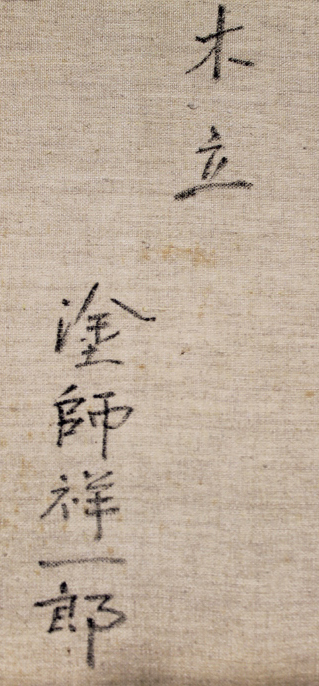 木立
塗師祥一郎